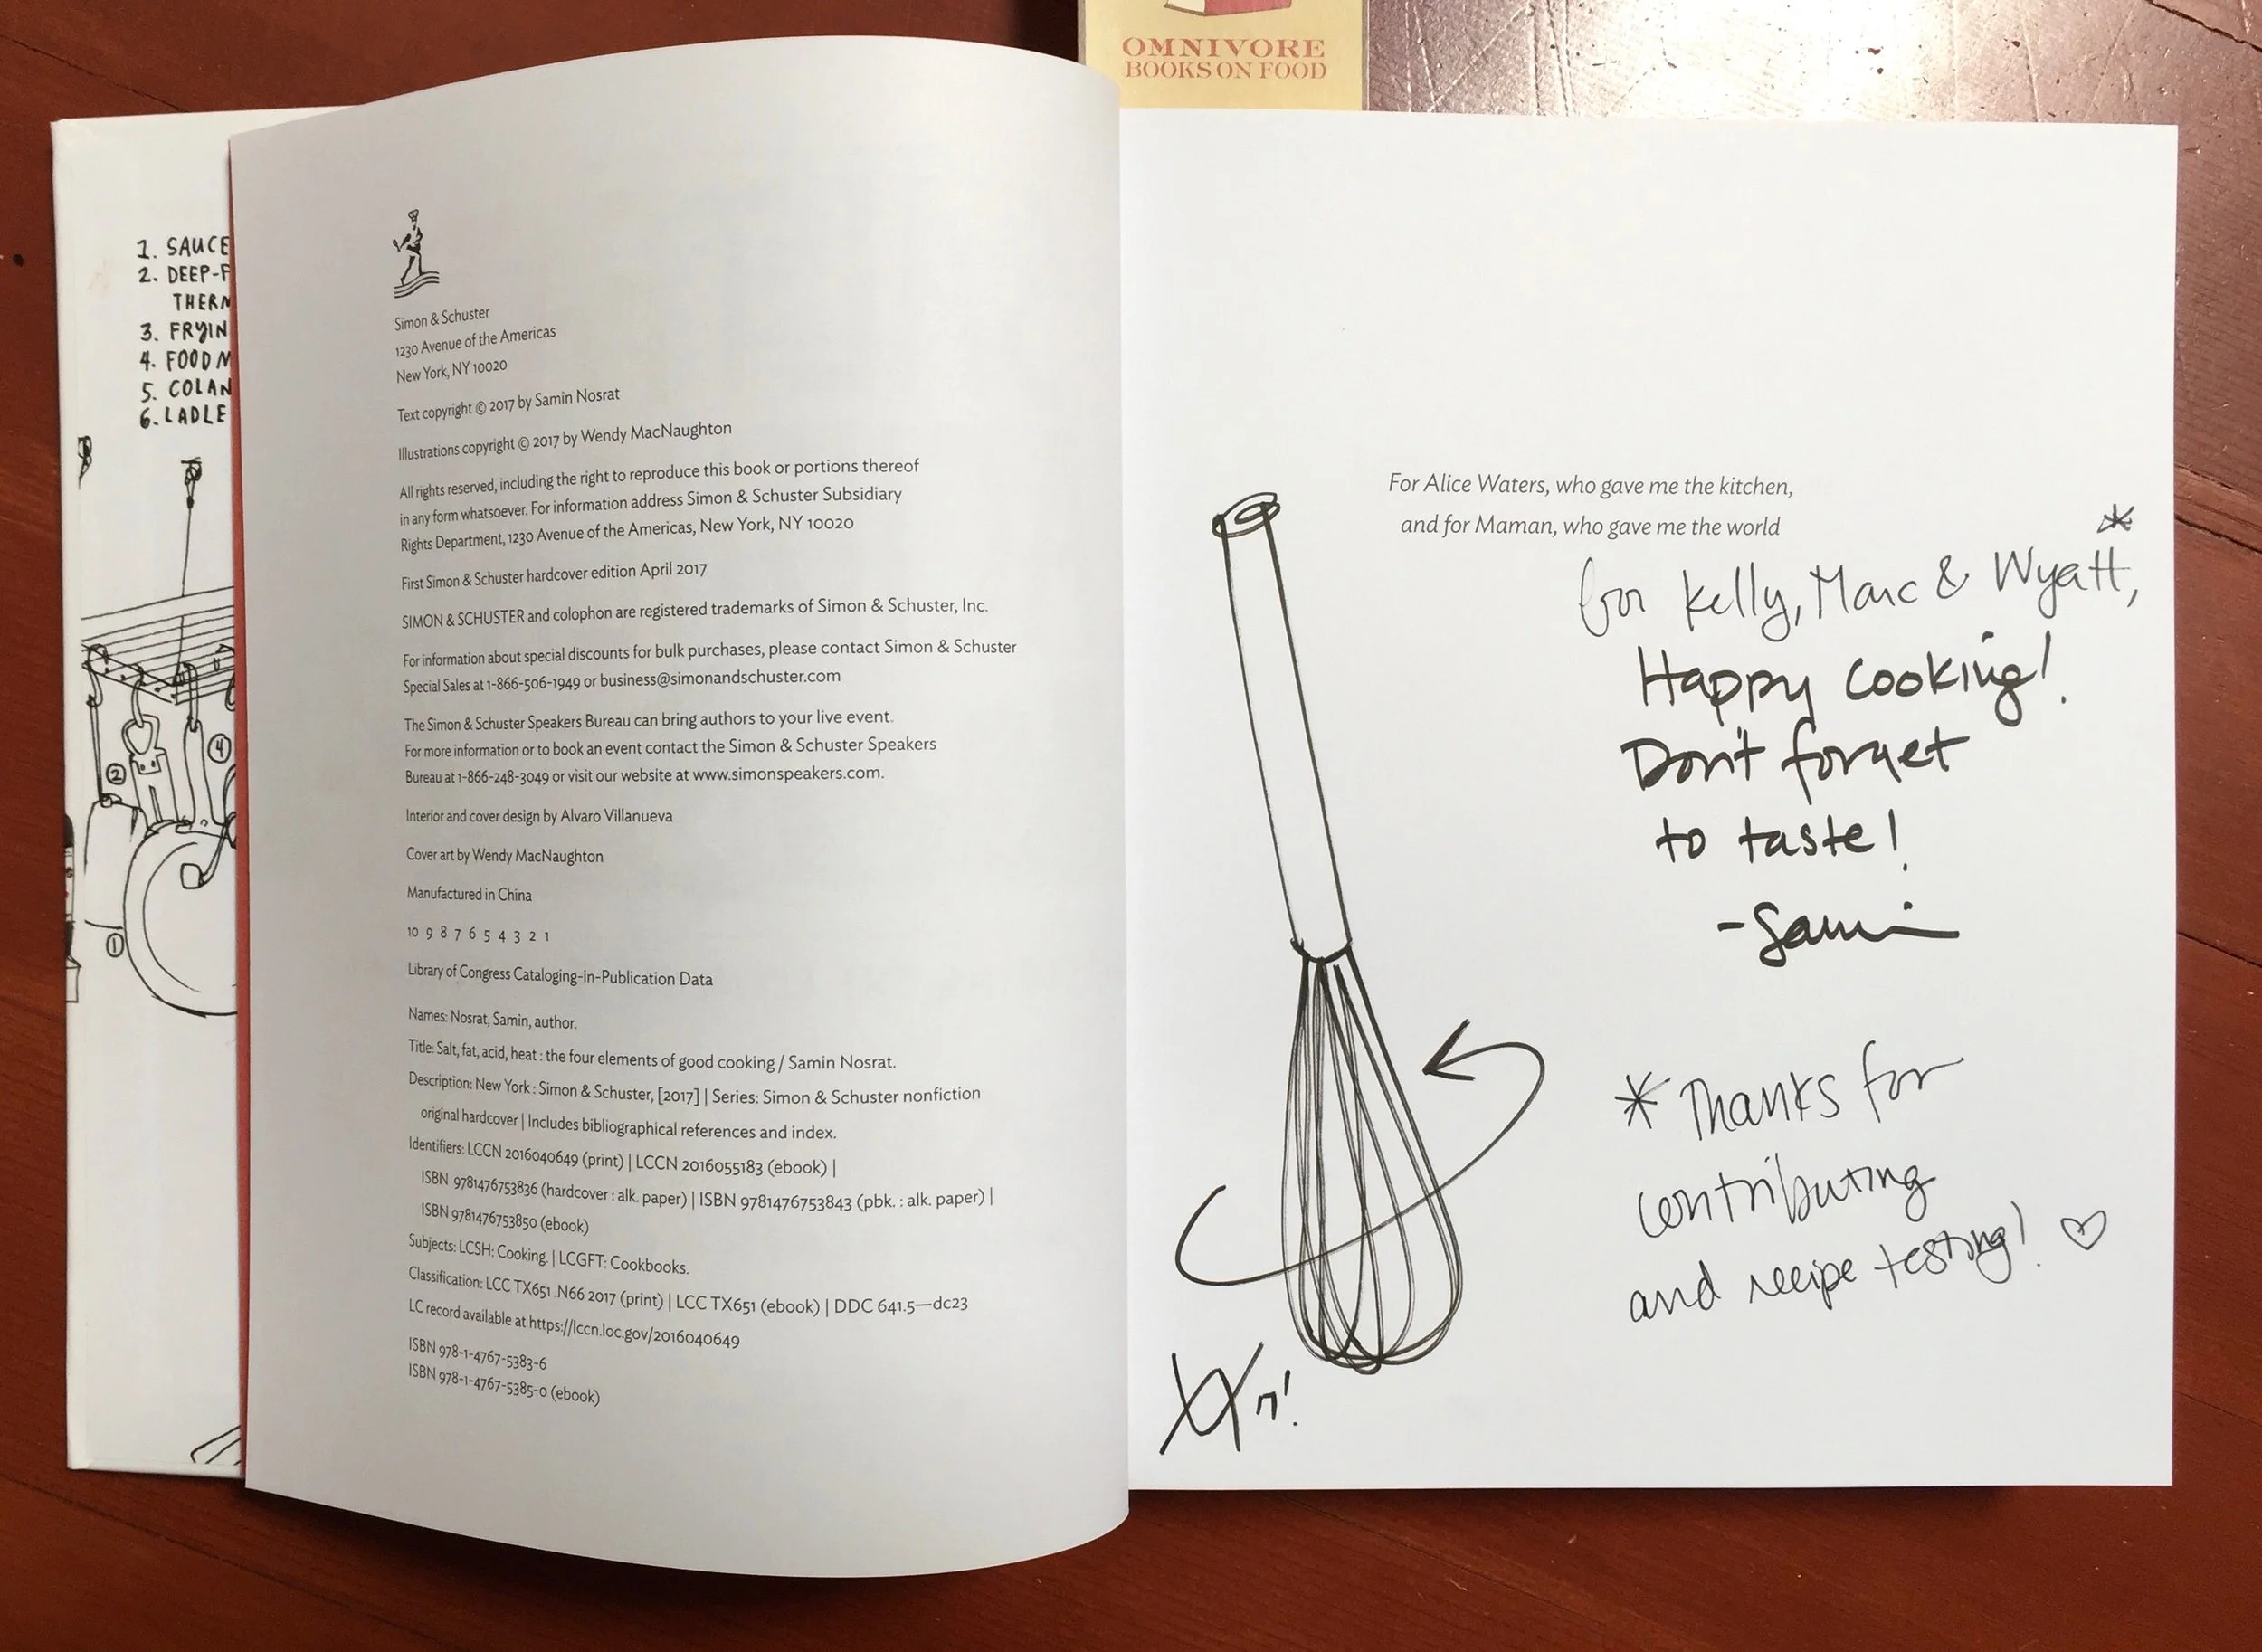 OMNIVORE
BOOKS ON FOOD
1. SAUCE
2. DEEP-F
THERM
3. FRYIN
4. FOOD M
5. COLAN
6. LADLE
2
4
1
Simon & Schuster
1230 Avenue of the Americas
New York, NY 10020
Text copyright © 2017 by Samin Nosrat
Illustrations copyright © 2017 by Wendy MacNaughton
All rights reserved, including the right to reproduce this book or portions thereof
in any form whatsoever. For information address Simon & Schuster Subsidiary
Rights Department, 1230 Avenue of the Americas, New York, NY 10020
First Simon & Schuster hardcover edition April 2017
SIMON & SCHUSTER and colophon are registered trademarks of Simon & Schuster, Inc.
For information about special discounts for bulk purchases, please contact Simon & Schuster
Special Sales at 1-866-506-1949 or business@simonandschuster.com
The Simon & Schuster Speakers Bureau can bring authors to your live event.
For more information or to book an event contact the Simon & Schuster Speakers
Bureau at 1-866-248-3049 or visit our website at www.simonspeakers.com.
Interior and cover design by Alvaro Villanueva
Cover art by Wendy MacNaughton
Manufactured in China
10 9 8 7 6 5 4 3 2 1
Library of Congress Cataloging-in-Publication Data
Names: Nosrat, Samin, author.
Title: Salt, fat, acid, heat : the four elements of good cooking / Samin Nosrat.
Description: New York : Simon & Schuster, [2017] | Series: Simon & Schuster nonfiction
original hardcover | Includes bibliographical references and index.
Identifiers: LCCN 2016040649 (print) | LCCN 2016055183 (ebook) |
ISBN 9781476753836 (hardcover : alk. paper) | ISBN 9781476753843 (pbk. : alk. paper) |
ISBN 9781476753850 (ebook)
Subjects: LCSH: Cooking. | LCGFT: Cookbooks.
Classification: LCC TX651 .N66 2017 (print) | LCC TX651 (ebook) | DDC 641.5—dc23
LC record available at https://lccn.loc.gov/2016040649
ISBN 978-1-4767-5383-6
ISBN 978-1-4767-5385-0 (ebook)
For Alice Waters, who gave me the kitchen,
and for Maman, who gave me the world
*
for Kelly, Marc & Wyatt,
Happy Cooking!
Don't forget
to taste!
-Samin
* Thanks for
contributing
and recipe testing! ♡